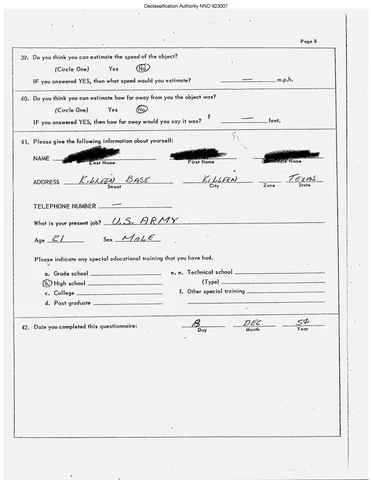 Declassification Authority NND 923007
Page 8
39. Do you think you can estimate the speed of the object?
(Circle One) Yes No
IF you answered YES, then what speed would you estimate? — m.p.h.
40. Do you think you can estimate how far away from you the object was?
(Circle One) Yes No
IF you answered YES, then how far away would you say it was? — feet.
41. Please give the following information about yourself:
NAME
Last Name First Name Middle Name
ADDRESS KILLEEN BASE KILLEEN TEXAS
Street City Zone State
TELEPHONE NUMBER —
What is your present job? U.S. ARMY
Age 21 Sex MALE
Please indicate any special educational training that you have had.
a. Grade school e. e. Technical school
b. High school (Type)
c. College f. Other special training
d. Post graduate
42. Date you completed this questionnaire: 8 DEC 54
Day Month Year